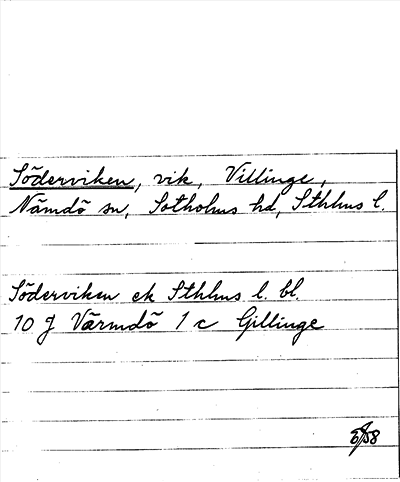 Söderviken, vik, Villinge,
Nämdö sn, Sotholms hd, Sthlms l.
Söderviken ek Sthlms l. bl.
10 J Värmdö 1 c Gillinge